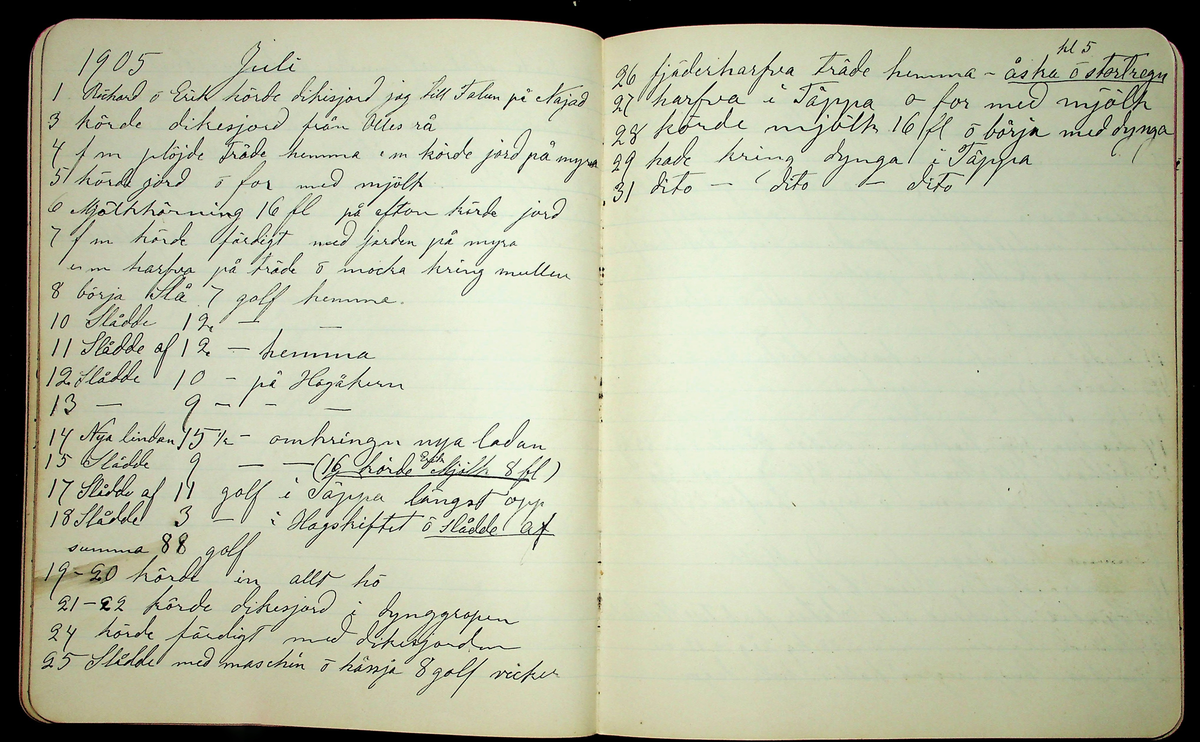 1905 Juli
1 Richard o Erik körde dikisjord jag till Falun på Najad
3 körde dikesjord från Olles rå
4 f m plöjde träde hemma e m körde jord på myra
5 körde jord o for med mjölk
6 Mjölkkörning 16 fl på efton körde jord
7 f m körde färdigt med jorden på myra
e m harfva på träde o mocka kring mullen
8 börja Slå 7 golf hemma.
10 Slådde 12 — —
11 Slådde af 12 — hemma
12 Slådde 10 — på Högåkern
13 — 9 — — —
14 Nya lindan 15 ½ — omkringn nya ladan
15 Slådde 9 — — (16 körde Erik Mjölk 8 fl)
17 Slådde af 11 golf i Täppa längst opp
18 Slådde 3 — i Hagskiftet o Slådde af
summa 88 golf
19-20 körde in allt hö
21-22 körde dikesjord i dynggropen
24 körde färdigt med dikesjorden
25 Slådde med maschin o hässja 8 golf vicker
kl 5
26 fjäderharfva träde hemma - åska o störtregn
27 harfva i Täppa o for med mjölk
28 körde mjölk 16 fl o börja med dynga
29 hade kring dynga i Täppa
31 dito — dito — dito